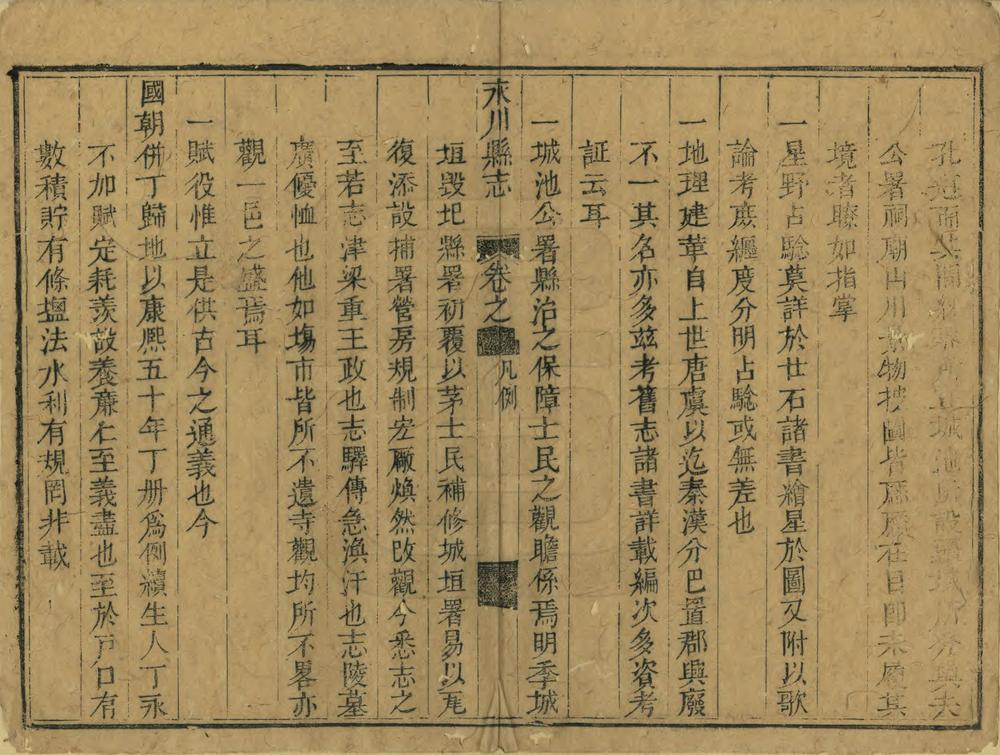 城池 設 所分與夫
公署祠廟山川 物披圖皆歷歷在目即未歷其
境者瞭如指掌
一星野占驗莫詳於甘石諸書繪星於圖又附以歌
論考度纏度分明占驗或無差也
一地理建革自上世唐虞以迄秦漢分巴置郡興廢
不一其名亦多兹考舊志諸書詳載編次多資考
証云耳
一城池公署縣治之保障士民之觀瞻係焉明季城
永川縣志 卷之 凡例
垣毀圯縣署初覆以茅士民補修城垣署易以瓦
復添設捕署營房規制宏厰煥然改觀今悉志之
至若志津梁重王政也志驛傳急渙汗也志陵墓
廣優恤也他如塲市皆所不遺寺觀均所不畧亦
觀一邑之盛焉耳
一賦役惟立是供古今之通義也今
國朝併丁歸地以康熙五十年丁册爲例續生人丁永
不加賦定耗羨敨養亷仁至義盡也至於戸口有
數積貯有條塩法水利有規罔非載